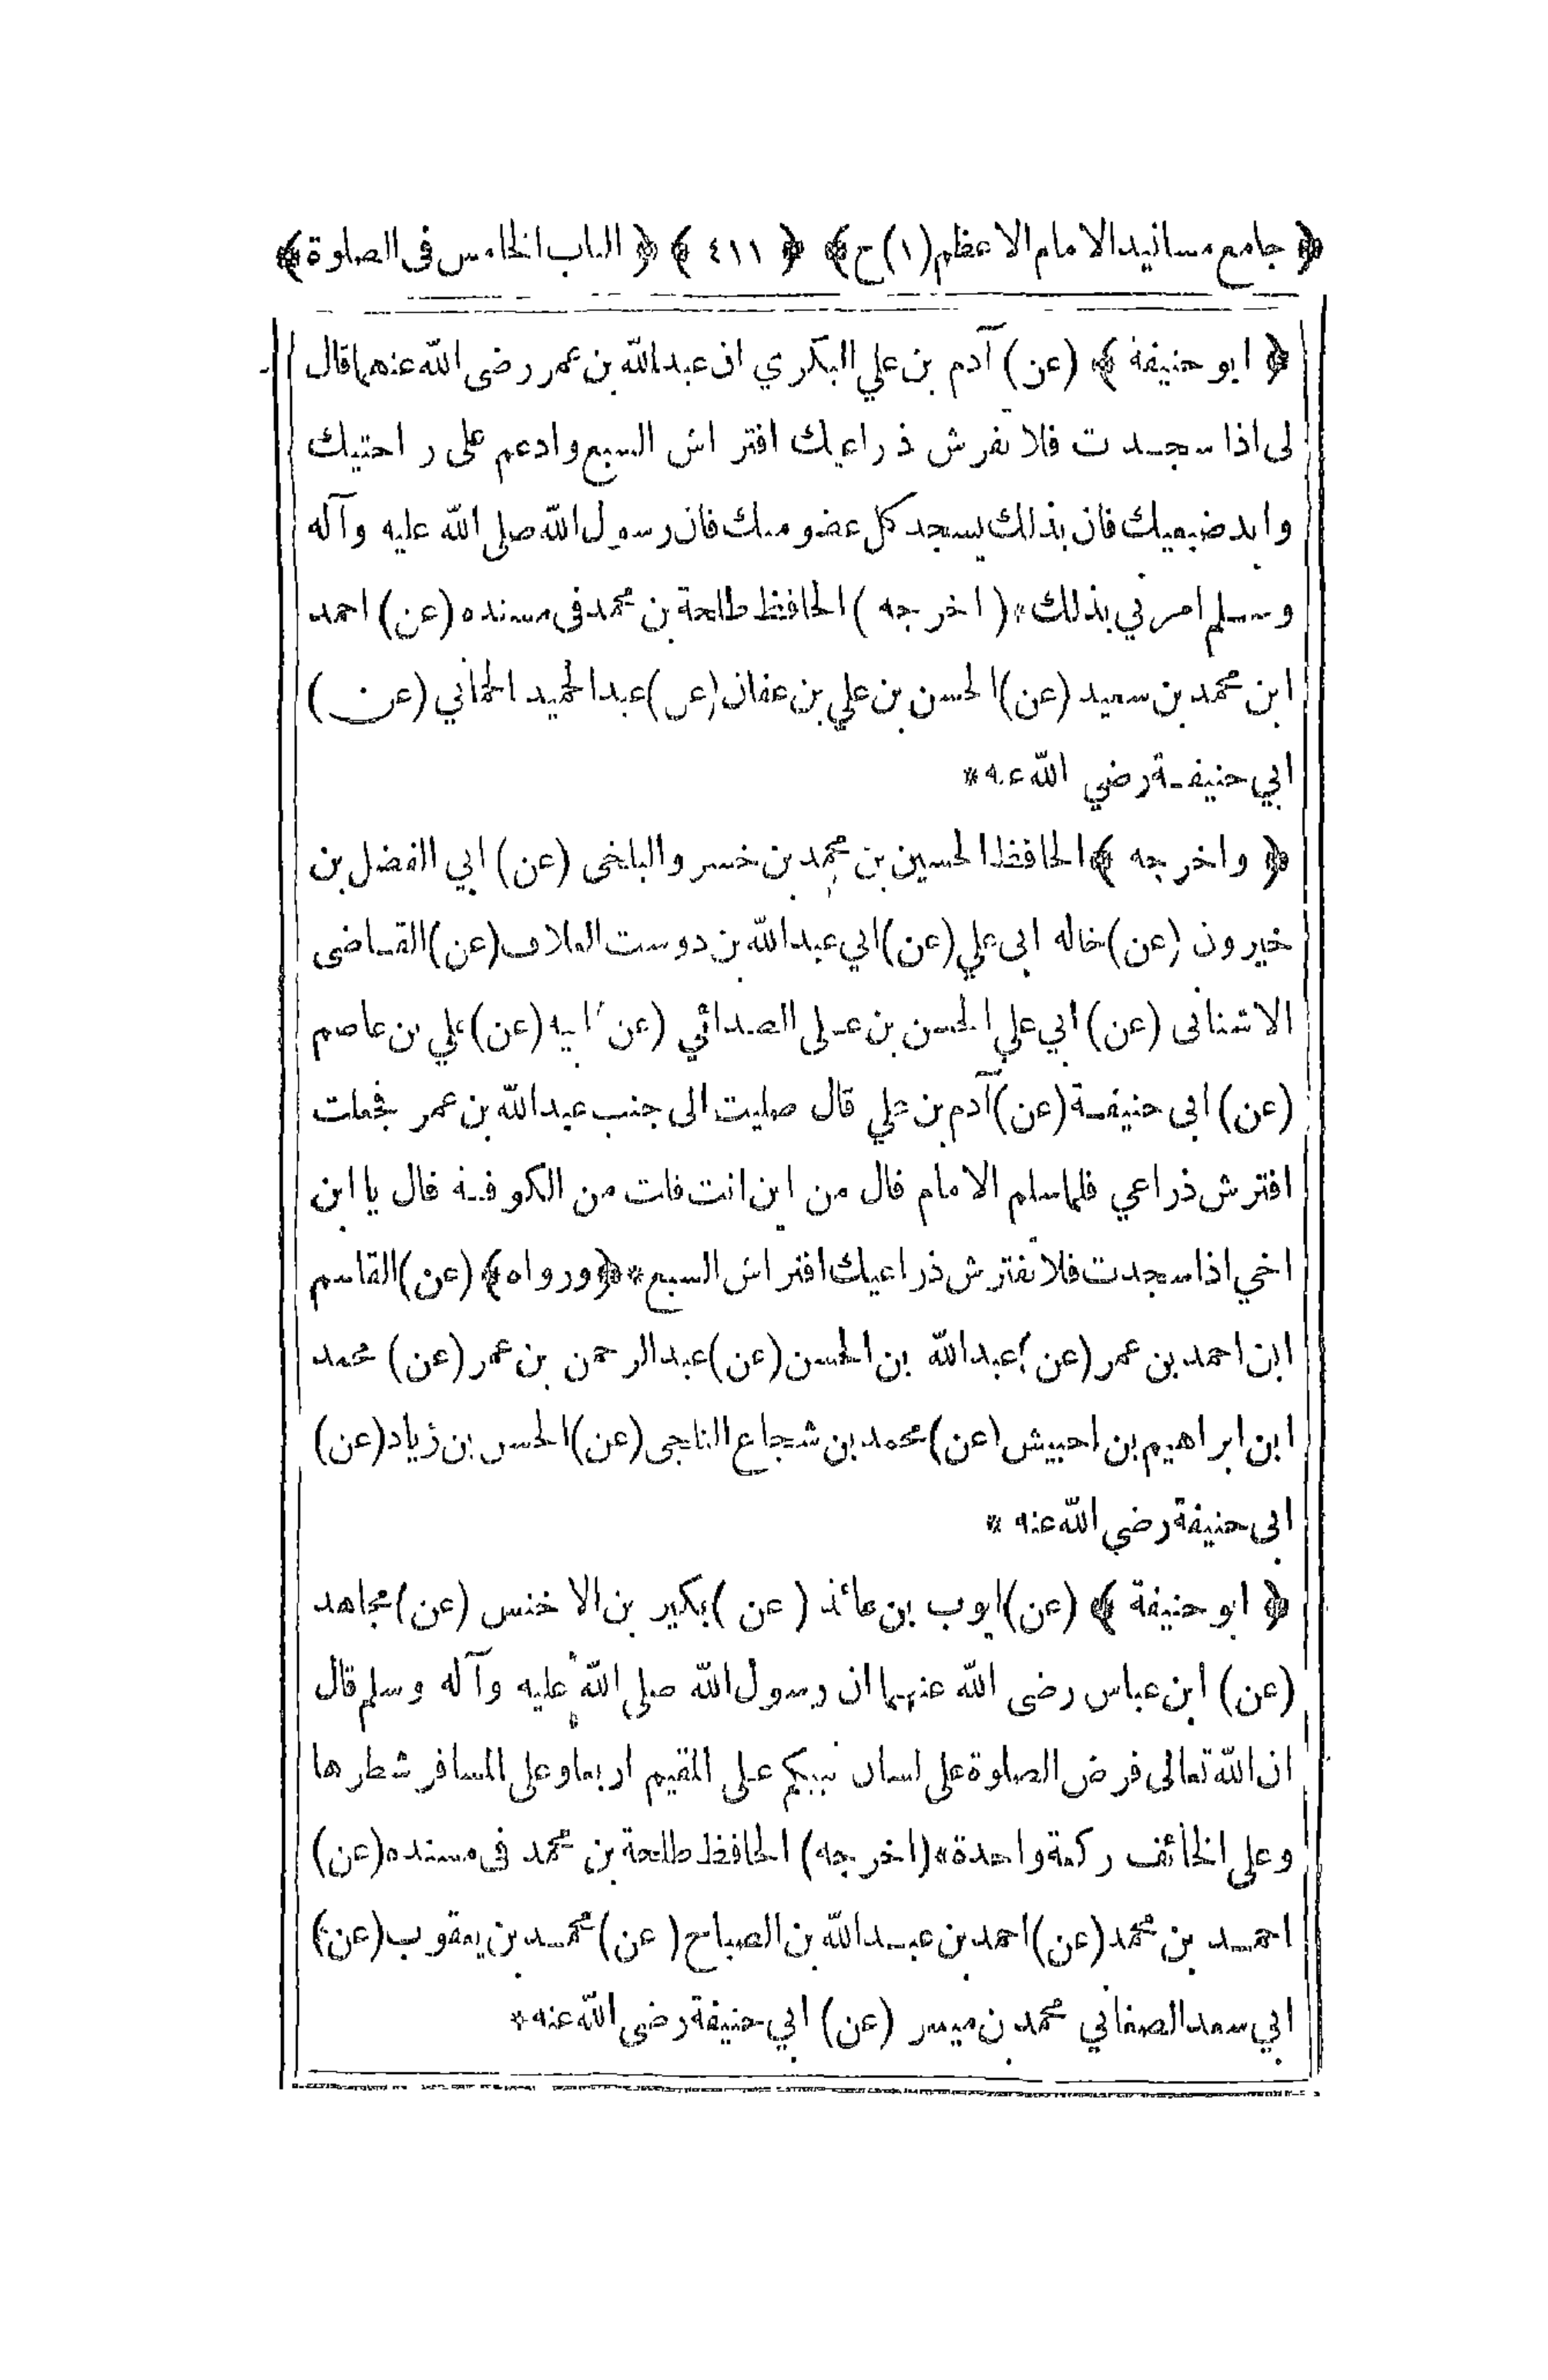 ﴿ جامع مسانيد الامام الاعظم (١) ج ﴾ ﴿ ٤١١ ﴾ ﴿ الباب الخامس فى الصلوة ﴾
﴿ ابو حنيفة ﴾ (عن) آدم بن علي البكري ان عبدالله بن عمر رضى الله عنهما قال
لى اذا سجدت فلا تفرش ذراعيك افتراش السبع وادعم على راحتيك
وابد ضبعيك فان بذلك يسجد كل عضو منك فان رسول الله صلى الله عليه وآله
وسلم امرني بذلك * ( اخرجه ) الحافظ طلحة بن محمد فى مسنده (عن) احمد
ابن محمد بن سعيد (عن) الحسن بن علي بن عفان (عن) عبدالحميد الحماني (عن)
ابي حنيفة رضي الله عنه *
﴿ واخرجه ﴾ الحافظ الحسين بن محمد بن خسرو البلخى (عن) ابي الفضل بن
خيرون (عن) خاله ابى علي (عن) ابي عبدالله بن دوست العلاف (عن) القاضى
الاشنانى (عن) ابي علي الحسن بن على الصدائي (عن) ابيه (عن) علي بن عاصم
(عن) ابى حنيفة (عن) آدم بن علي قال صليت الى جنب عبدالله بن عمر فجعلت
افترش ذراعي فلما سلم الامام قال من اين انت قلت من الكوفة قال يا ابن
اخي اذا سجدت فلا تفترش ذراعيك افتراش السبع * ﴿ ورواه ﴾ (عن) القاسم
ابن احمد بن عمر (عن) عبدالله بن الحسن (عن) عبدالرحمن بن عمر (عن) محمد
ابن ابراهيم بن احبيش (عن) محمد بن شجاع الثلجى (عن) الحسن بن زياد (عن)
ابى حنيفة رضي الله عنه *
﴿ ابو حنيفة ﴾ (عن) ايوب بن عائذ ( عن ) بكير بن الاخنس (عن) مجاهد
(عن) ابن عباس رضى الله عنهما ان رسول الله صلى الله عليه وآله وسلم قال
ان الله تعالى فرض الصلوة على لسان نبيكم على المقيم اربعا وعلى المسافر شطرها
وعلى الخائف ركعة واحدة * (اخرجه) الحافظ طلحة بن محمد فى مسنده (عن)
احمد بن محمد (عن) احمد بن عبدالله بن الصباح (عن) محمد بن يعقوب (عن)
ابي سعد الصغاني محمد بن ميسر (عن) ابي حنيفة رضى الله عنه *